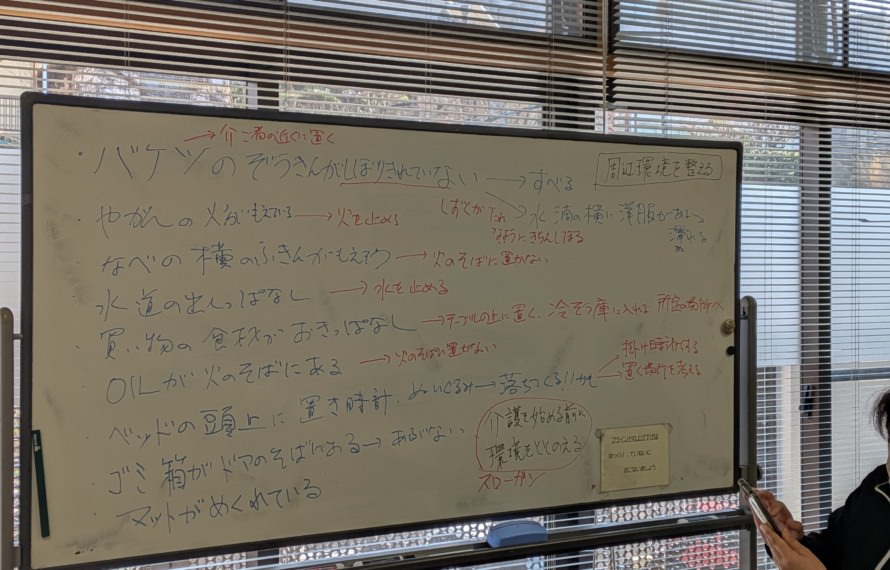 →介ご者の近くに置く
・バケツのぞうきんがしぼりきれていない → すべる
周辺環境を整える
しずくがたれ
→ 水滴の横に洋服がある→
濡れる
きちんしぼる
やかんの火がもえている → 火を止める
なべの横のふきんがもえそう → 火のそばに置かない
水道の出しっぱなし → 水を止める
買い物の食材がおきっぱなし → テーブルの上に置く、冷ぞう庫に入れる 所定の場所へ
OILが火のそばにある → 火のそばに置かない
ベッドの頭上に置き時計、ぬいぐるみ → 落ちてくる!!かも
→ 掛け時計にする
→ 置く場所を考える
ゴミ箱がドアのそばにある → あぶない
マットがめくれている
介護を始める前に
環境をととのえる
スローガン
ブラインドの上げ下げは
ゆっくり、ていねいに
おこないましょう